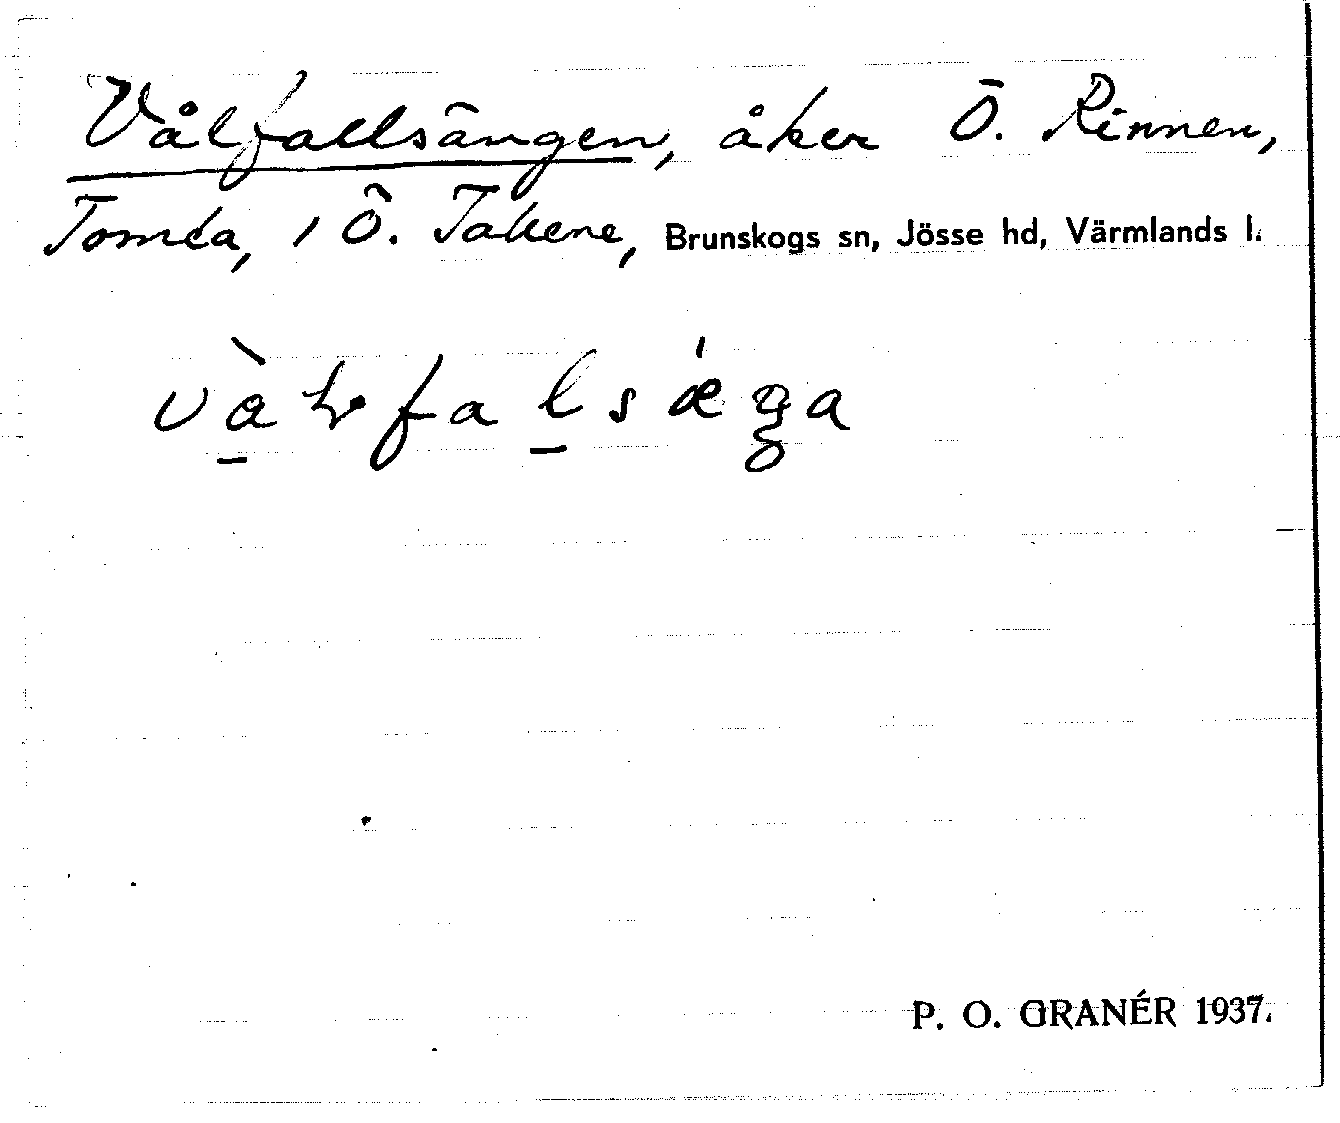 Vålfallsängen, åker Ö. Rinnen,
Tomta, 1 Ö. Takene, Brunskogs sn, Jösse hd, Värmlands l.
P. O. GRANÉR 1937.